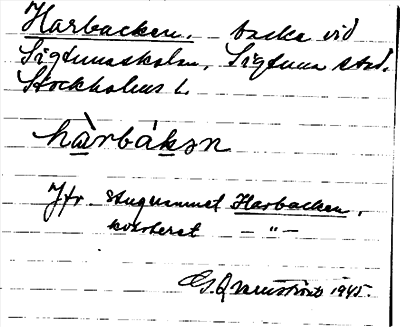 Harbacken, backe vid
Sigtunaskolan, Sigtuna stad.
Stockholms L.
hàrbákən
Jfr stugunamnet Harbacken,
kvarteret — " —
G. Qvarnström 1945.